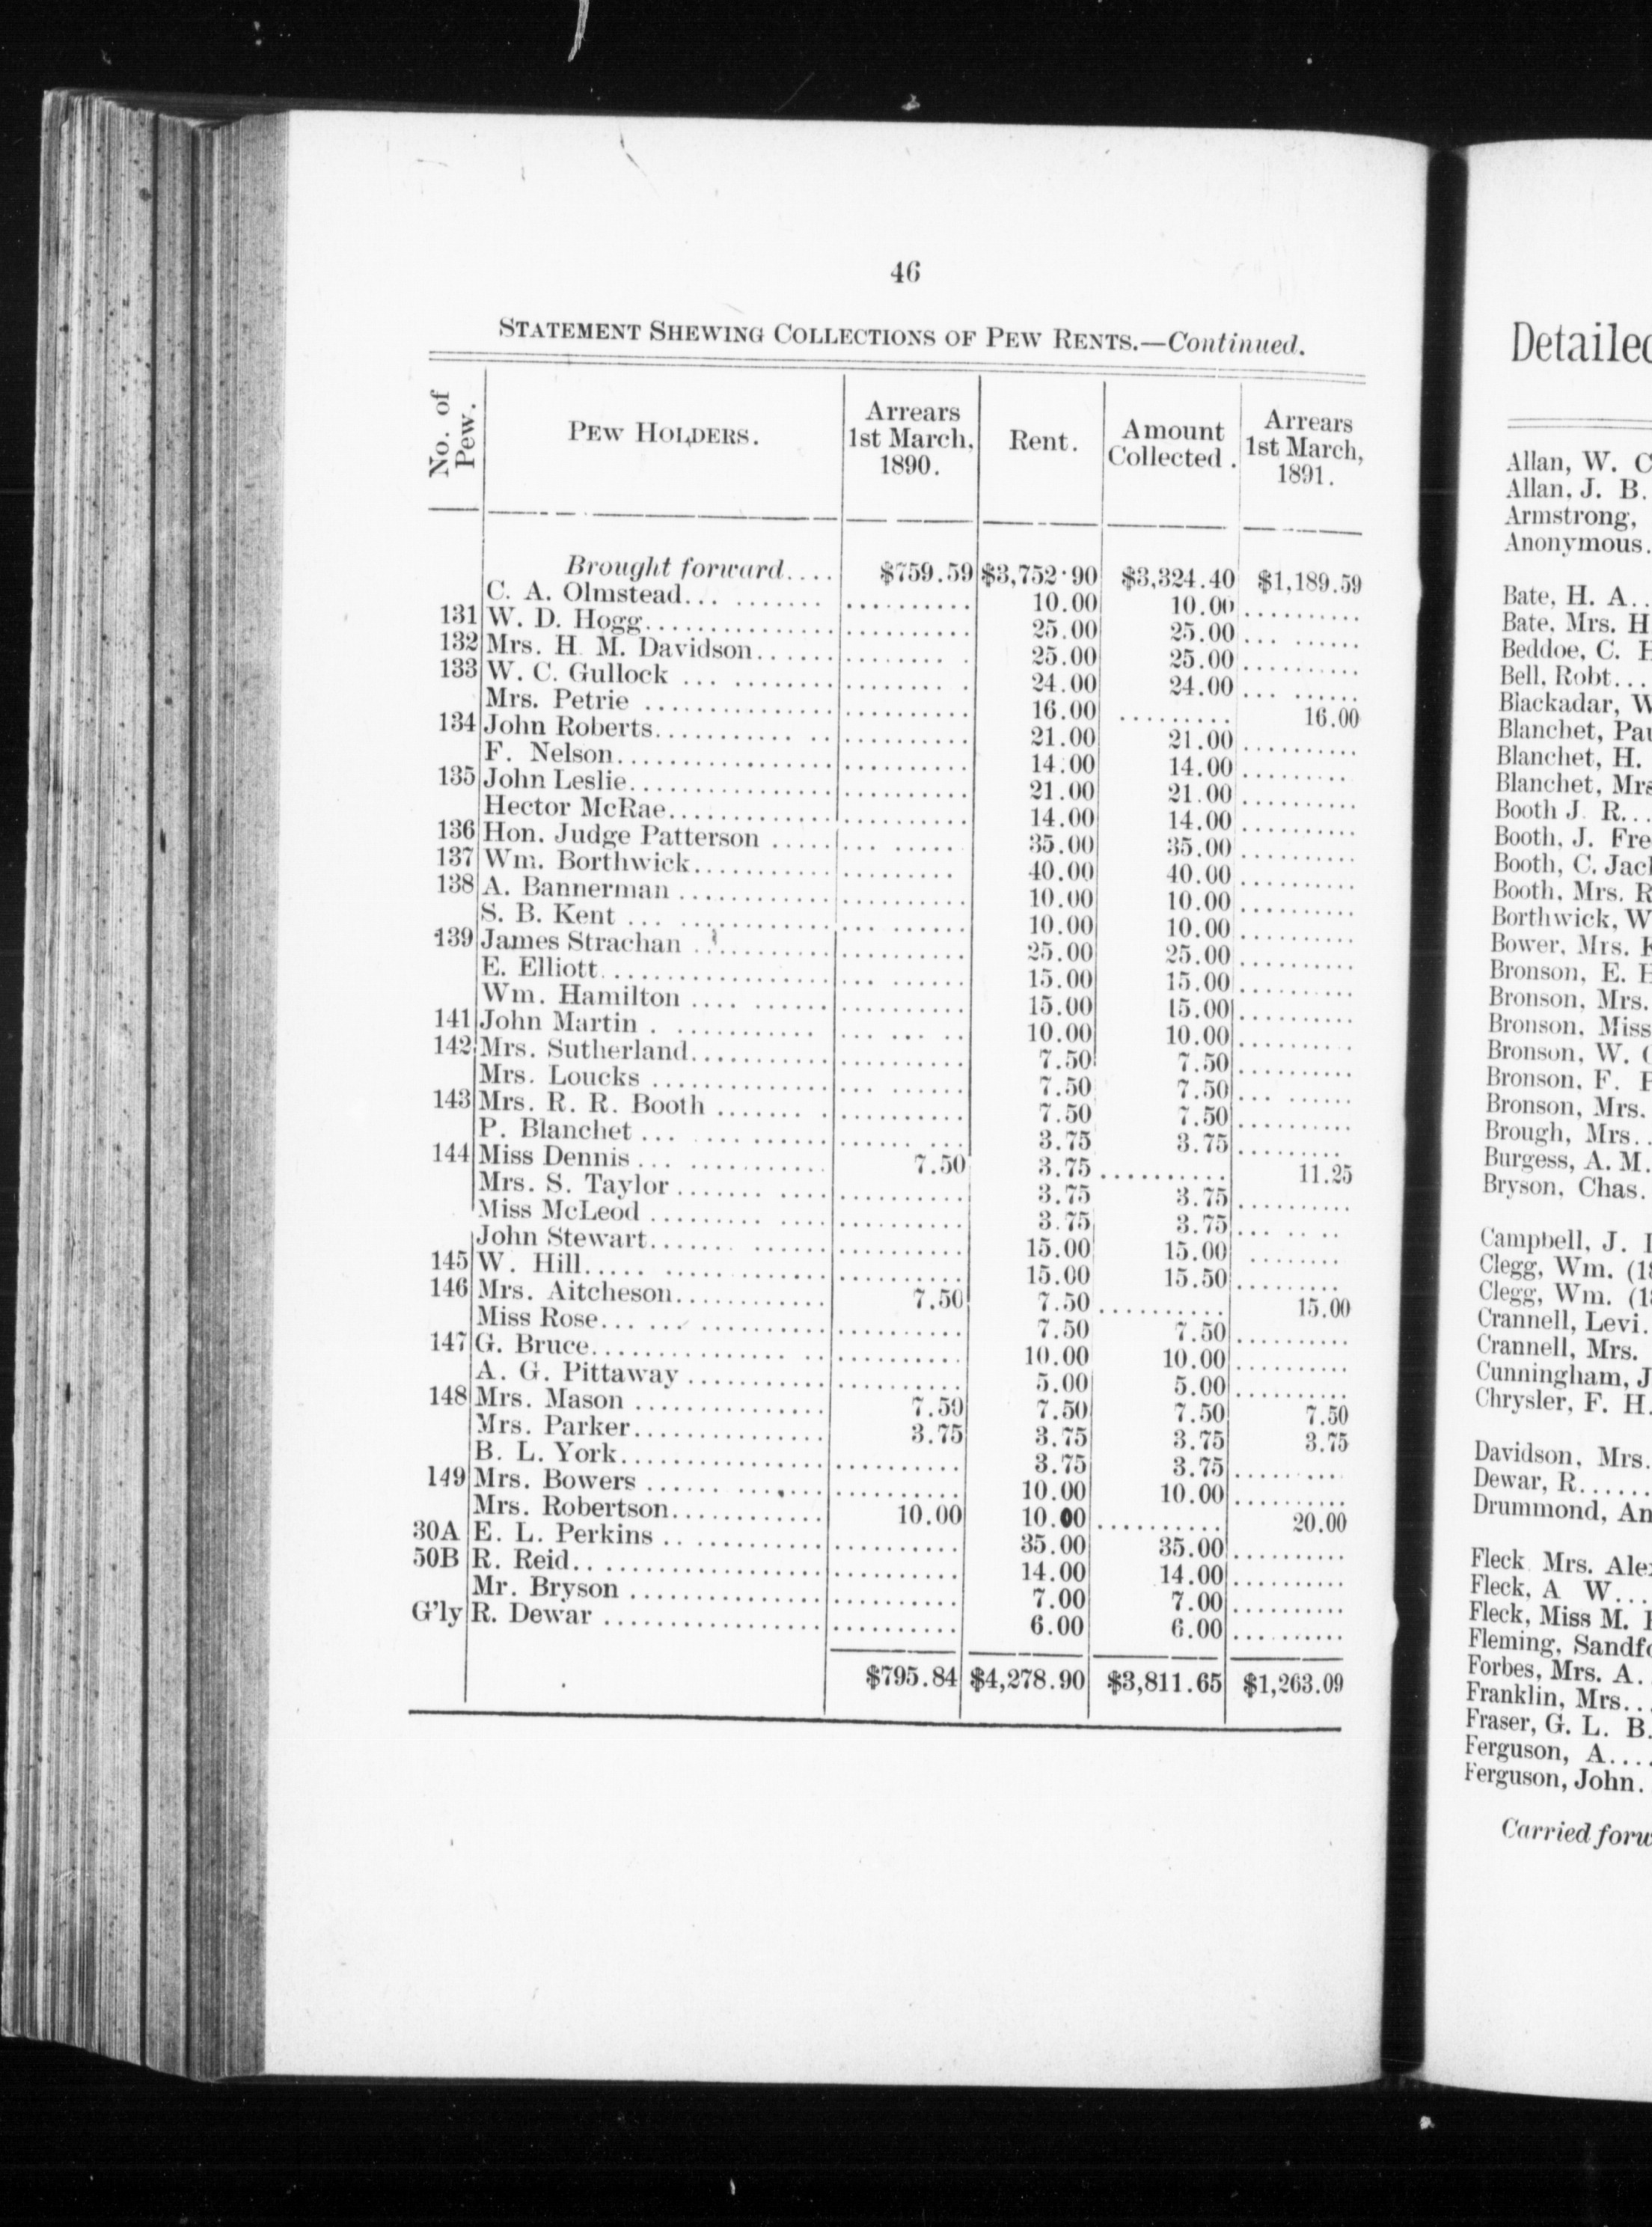 46
STATEMENT SHEWING COLLECTIONS OF PEW RENTS.—Continued.
No. of Pew. PEW HOLDERS. Arrears 1st March, 1890. Rent. Amount Collected. Arrears 1st March, 1891.
Brought forward.... $759.59 $3,752.90 $3,324.40 $1,189.59
C. A. Olmstead... ....... .......... 10.00 10.00 ..........
131 W. D. Hogg............... .......... 25.00 25.00 ... ......
132 Mrs. H. M. Davidson...... ........ . 25.00 25.00 ..........
133 W. C. Gullock ... ........ ........ . 24.00 24.00 ... ......
Mrs. Petrie ............... .......... 16.00 ......... 16.00
134 John Roberts........... .. .......... 21.00 21.00 ..........
F. Nelson................. .......... 14.00 14.00 ..........
135 John Leslie................ .......... 21.00 21.00 ..........
Hector McRae............ .......... 14.00 14.00 ..........
136 Hon. Judge Patterson ..... ... ..... 35.00 35.00 ..........
137 Wm. Borthwick.......... ......... 40.00 40.00 ..........
138 A. Bannerman ............ .......... 10.00 10.00 ..........
S. B. Kent ... ............ ... ...... 10.00 10.00 ..........
139 James Strachan .......... .......... 25.00 25.00 ..........
E. Elliott.................. ... ...... 15.00 15.00 ..........
Wm. Hamilton .... ....... .......... 15.00 15.00 ..........
141 John Martin . ........... ... ... .. 10.00 10.00 ..........
142 Mrs. Sutherland........... .......... 7.50 7.50 ..........
Mrs. Loucks .............. ... ...... 7.50 7.50 ... ......
143 Mrs. R. R. Booth ....... . .......... 7.50 7.50 ..........
P. Blanchet ... .......... ...... ... 3.75 3.75 .........
144 Miss Dennis ... .......... 7.50 3.75 .......... 11.25
Mrs. S. Taylor ........ ... .......... 3.75 3.75 ..........
Miss McLeod ......... .... .......... 3.75 3.75 ... ... ..
John Stewart....... ...... .......... 15.00 15.00 ........
145 W. Hill..... ............. .......... 15.00 15.50 .........
146 Mrs. Aitcheson............ 7.50 7.50 .......... 15.00
Miss Rose... ... .......... .......... 7.50 7.50 ..........
147 G. Bruce................ .. .......... 10.00 10.00 ..........
A. G. Pittaway ........... .......... 5.00 5.00 ..........
148 Mrs. Mason ............... 7.50 7.50 7.50 7.50
Mrs. Parker............... 3.75 3.75 3.75 3.75
B. L. York................ .......... 3.75 3.75 ..........
149 Mrs. Bowers ...... ....... .......... 10.00 10.00 ..........
Mrs. Robertson............ 10.00 10.00 .......... 20.00
30A E. L. Perkins .. .......... .......... 35.00 35.00 ..........
50B R. Reid.................... .......... 14.00 14.00 ..........
Mr. Bryson ............... .......... 7.00 7.00 ..........
G'ly R. Dewar ................. .......... 6.00 6.00 ..........
$795.84 $4,278.90 $3,811.65 $1,263.09
Detailed
Allan, W. C
Allan, J. B.
Armstrong,
Anonymous.
Bate, H. A..
Bate, Mrs. H
Beddoe, C.
Bell, Robt...
Blackadar, W
Blanchet,
Blanchet, H.
Blanchet, Mrs
Booth J. R...
Booth, J.
Booth, C.
Booth, Mrs. R
Borthwick, W
Bower, Mrs.
Bronson, E. H
Bronson, Mrs.
Bronson, Miss
Bronson, W.
Bronson, F.
Bronson, Mrs.
Brough, Mrs..
Burgess, A. M.
Bryson, Chas.
Campbell, J.
Clegg, Wm.
Clegg, Wm.
Crannell, Levi.
Crannell, Mrs.
Cunningham, J
Chrysler, F. H.
Davidson, Mrs.
Dewar, R......
Drummond,
Fleck Mrs.
Fleck, A W...
Fleck, Miss M.
Fleming,
Forbes, Mrs. A.
Franklin, Mrs..
Fraser, G. L. B.
Ferguson, A....
Ferguson, John.
Carried